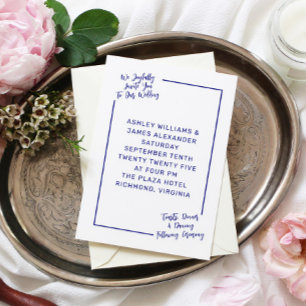 We Joyfully
Invite You
To Our Wedding
ASHLEY WILLIAMS &
JAMES ALEXANDER
SATURDAY
SEPTEMBER TENTH
TWENTY TWENTY FIVE
AT FOUR PM
THE PLAZA HOTEL
RICHMOND, VIRGINIA
Toasts, Dinner
& Dancing
Following Ceremony